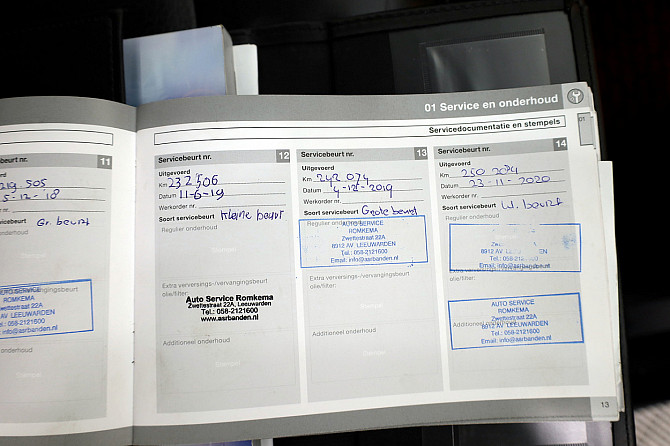 01 Service en onderhoud
01
Servicedocumentatie en stempels
Servicebeurt nr. 11
219 505
5-12-'18
Gr. beurt
onderhoud
AUTO SERVICE
ROMKEMA
Zwettestraat 22A
AV LEEUWARDEN
Tel.: 058-2121600
info@asrbanden.nl
onderhoud
Servicebeurt nr. 12
Uitgevoerd
Km 232 506
Datum 11-6-19
Werkorder nr.
Soort servicebeurt Kleine beurt
Regulier onderhoud
Extra verversings-/vervangingsbeurt
olie/filter:
Auto Service Romkema
Zwettestraat 22A, Leeuwarden
Tel.: 058-2121600
www.asrbanden.nl
Additioneel onderhoud
Servicebeurt nr. 13
Uitgevoerd
Km 242 074
Datum 4-12-2019
Werkorder nr.
Soort servicebeurt Grote beurt
Regulier onderhoud
AUTO SERVICE
ROMKEMA
Zwettestraat 22A
8912 AV LEEUWARDEN
Tel.: 058-2121600
Email: info@asrbanden.nl
Extra verversings-/vervangingsbeurt
olie/filter:
Additioneel onderhoud
Servicebeurt nr. 14
Uitgevoerd
Km 250 2074
Datum 23-11-2020
Werkorder nr.
Soort servicebeurt kl. beurt
AUTO SERVICE
ROMKEMA
Zwettestraat 22A
8912 AV LEEUWARDEN
Tel.: 058-2121600
Email: info@asrbanden.nl
AUTO SERVICE
ROMKEMA
Zwettestraat 22A
8912 AV LEEUWARDEN
Tel.: 058-2121600
Email: info@asrbanden.nl
13